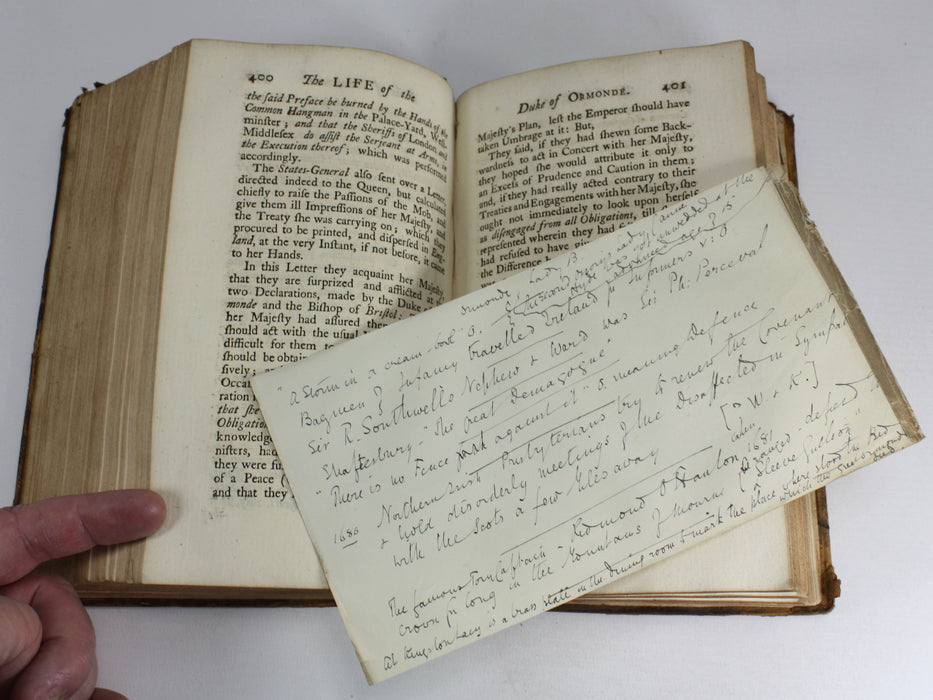 400 The LIFE of the
the ſaid Preface be burned by the Hands of the
Common Hangman in the Palace-Yard, Weſt-
minſter; and that the Sheriffs of London and
Middleſex do aſſiſt the Serjeant at Arms, in
the Execution thereof; which was performed
accordingly.
The States-General alſo ſent over a Letter,
directed indeed to the Queen, but calculated
chiefly to raiſe the Paſſions of the Mob, and
give them ill Impreſſions of her Majeſty, and
the Treaty ſhe was carrying on; which they
procured to be printed, and diſperſed in Eng-
land, at the very Inſtant, if not before, it came
to her Hands.
In this Letter they acquaint her Majeſty
that they are ſurprized and afflicted at
two Declarations, made by the Duke of
monde and the Biſhop of Briſtol;
her Majeſty had aſſured the
ſhould act with the uſual
difficult for them to
ſhould be obtain
ſively; a
Occa
ration
that ſhe
Obligatio
knowledg
niſters, had
they were fu
of a Peace (
and that they
Duke of ORMONDE. 401
Majeſty's Plan, leſt the Emperor ſhould have
taken Umbrage at it: But,
They ſaid, if they had ſhewn ſome Back-
wardneſs to act in Concert with her Majeſty,
they hoped ſhe would attribute it only to
an Exceſs of Prudence and Caution in them;
and, if they had really acted contrary to their
Treaties and Engagements with her Majeſty, ſhe
ought not immediately to look upon herſelf
as diſengaged from all Obligations, till
repreſented wherein they had
had refuſed to have giv
the Difference b
Ormonde, Lady B
"A storm in a cream bowl" O.
Bagmen of Infamy travelled Ireland fr Informers v. O
Sir R. Southwell's Nephew & Ward was Sir Ph. Perceval
Shaftesbury "The Great Demagogue"
"There is no Fence against it" O. meaning Defense
Northern Irish Presbyterians try to renew the Covenant
1686 & hold disorderly meetings of the Disaffected in Sympathy
with the Scots a few Miles away [? W & K.]
taken 1681
The famous Tory Captain "Redmond O Hanlon
crown for long in the Mountains of Mourne & Sleeve Gulleon"
At Kingston Lacy is a brass plate in the dining room to mark the place where stood the Bed
which the Great Ormond died